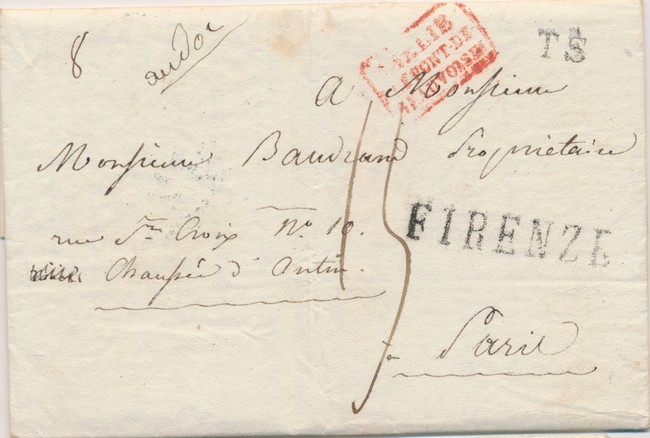 8
T.S
ITALIE
PONT-DE-
BEAUVOISIN
A Monsieur
Monsieur Baudrand Propriétaire
rue Ste Croix No. 10.
Chaussée d'Antin
15
FIRENZE
à Paris